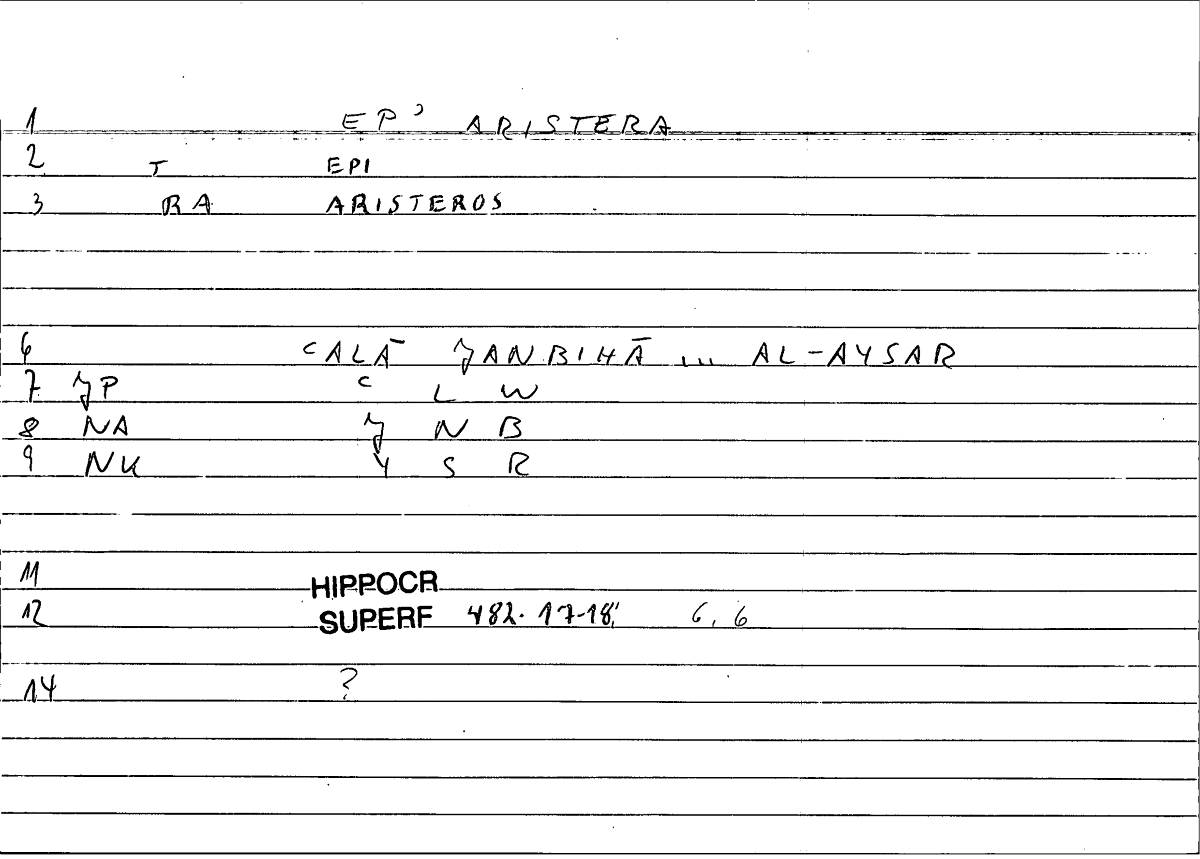 1 EP' ARISTERA
2 T EPI
3 RA ARISTEROS
6 ʿALĀ ǦANBIHĀ ... AL-AYSAR
7 ǦP ʿ L W
8 NA Ǧ N B
9 NK Y S R
11 HIPPOCR
12 SUPERF 482.17-18; 6,6
14 ?